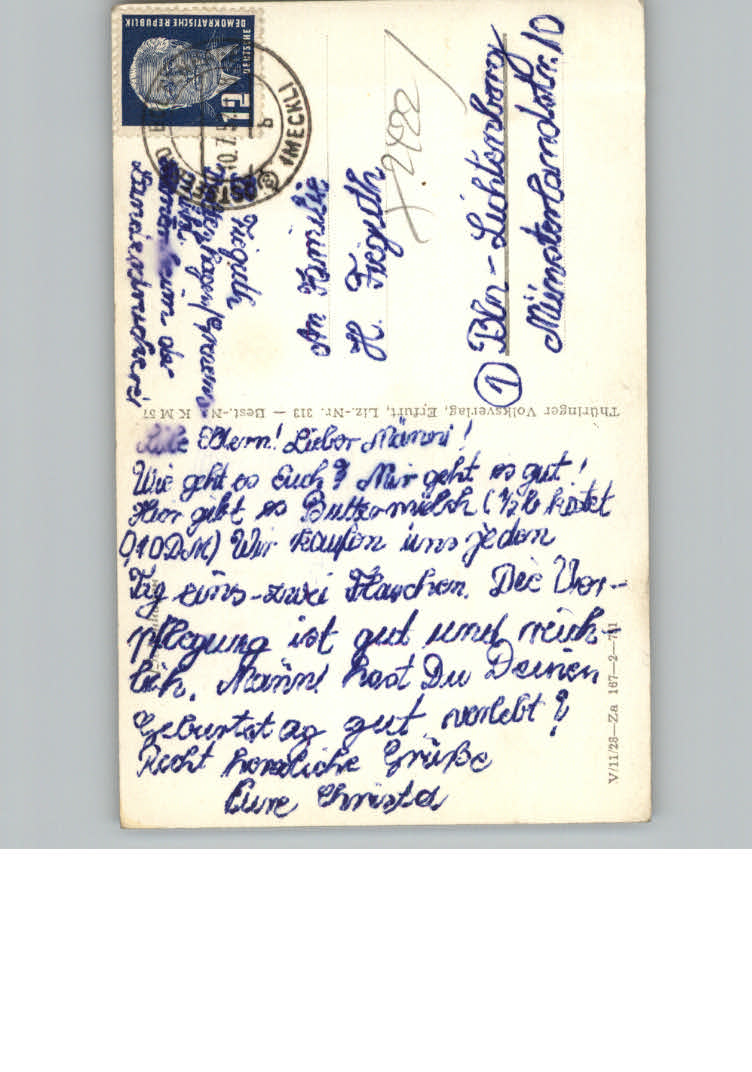 DEUTSCHE
DEMOKRATISCHE REPUBLIK
12
10.7.5
b
(MECKL)
Fieguth
An Familie
H. Fieguth
① Bln-Lichtenberg
Münsterlandstr. 10
Thüringer Volksverlag, Erfurt, Liz.-Nr. 313 — Best.-N K M 57
Eltern! Lieber Männi!
Wie geht es Euch? Mir geht es gut!
Hier gibt es Buttermilch (½ l kostet
0,10 DM) Wir kaufen uns jeden
Tag eins-zwei Flaschen. Die Ver-
pflegung ist gut und reich-
lich. Männi hast Du Deinen
Geburtstag gut verlebt?
Recht herzliche Grüße
Eure Christa
V/11/28—Za 167—2—7